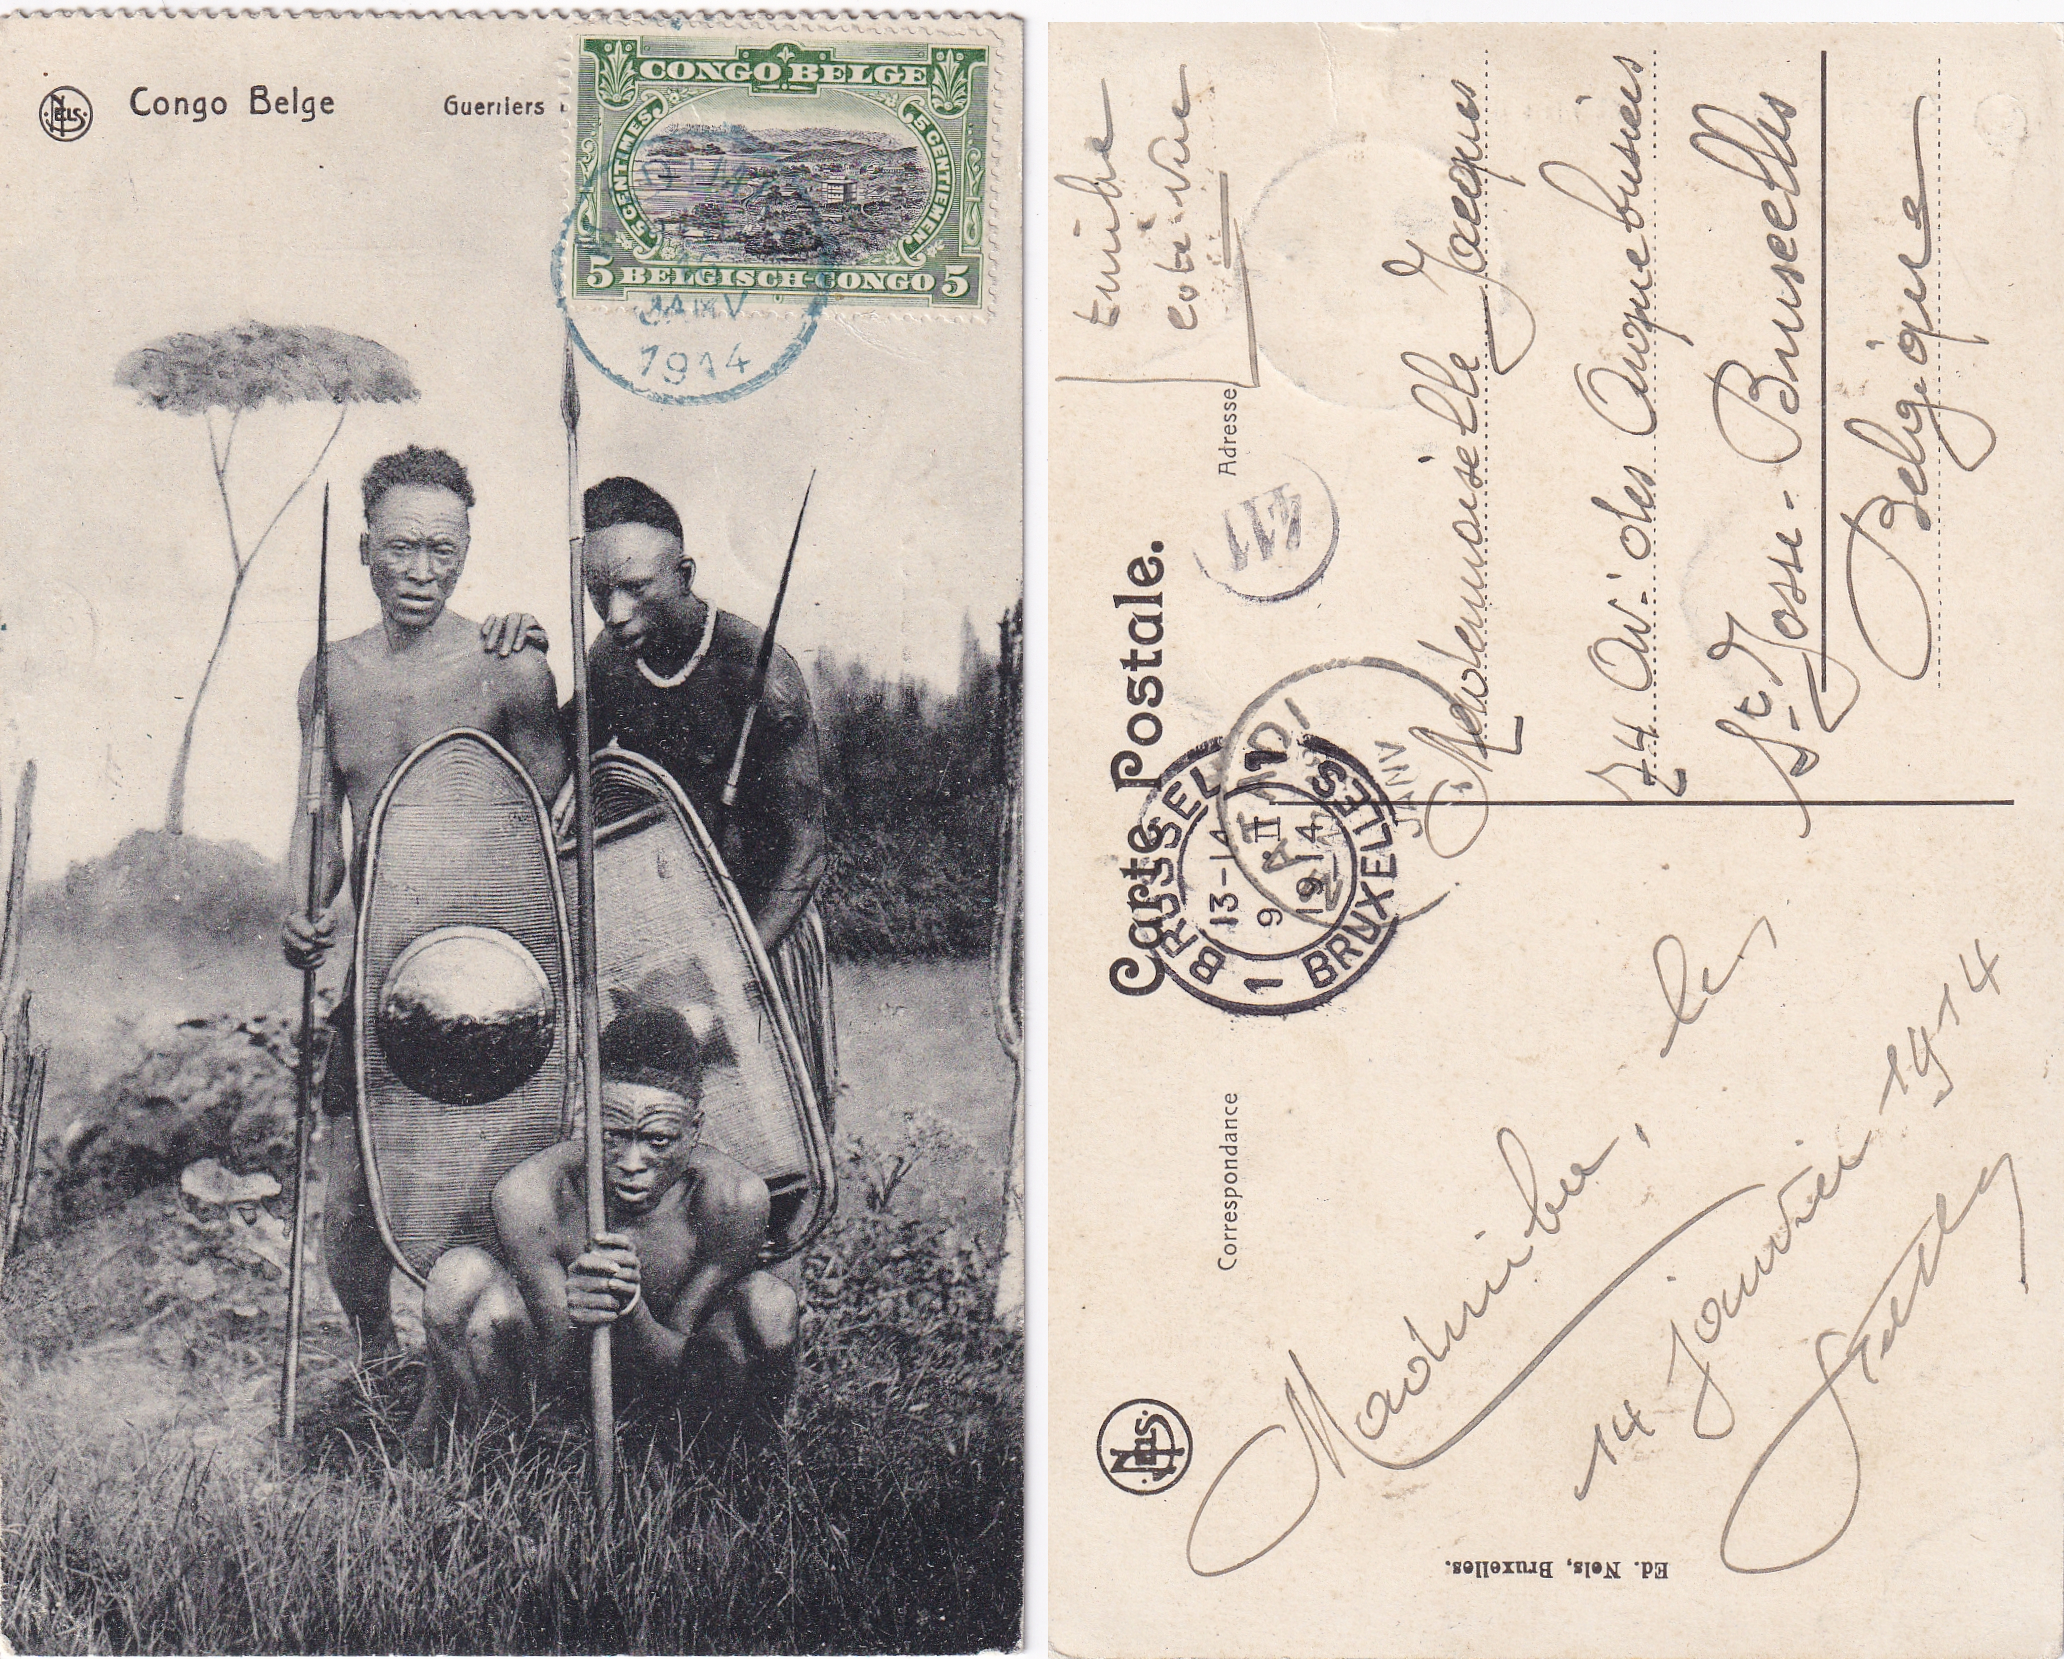 NELS
Congo Belge
Guerriers
CONGO BELGE
5 CENTIMES
5 CENTIEMEN
5 BELGISCH-CONGO 5
JANV
1914
timbre
côté vue
Carte Postale.
Adresse
Correspondance
411
BRUSSEL 1
13-14
9 II
1914
1 BRUXELLES
JANV
Mademoiselle Jacques
74 Av. des Arquebusiers
St Josse-Bruxelles
Belgique
le
14 Janvier 1914
NELS
Ed. Nels, Bruxelles.